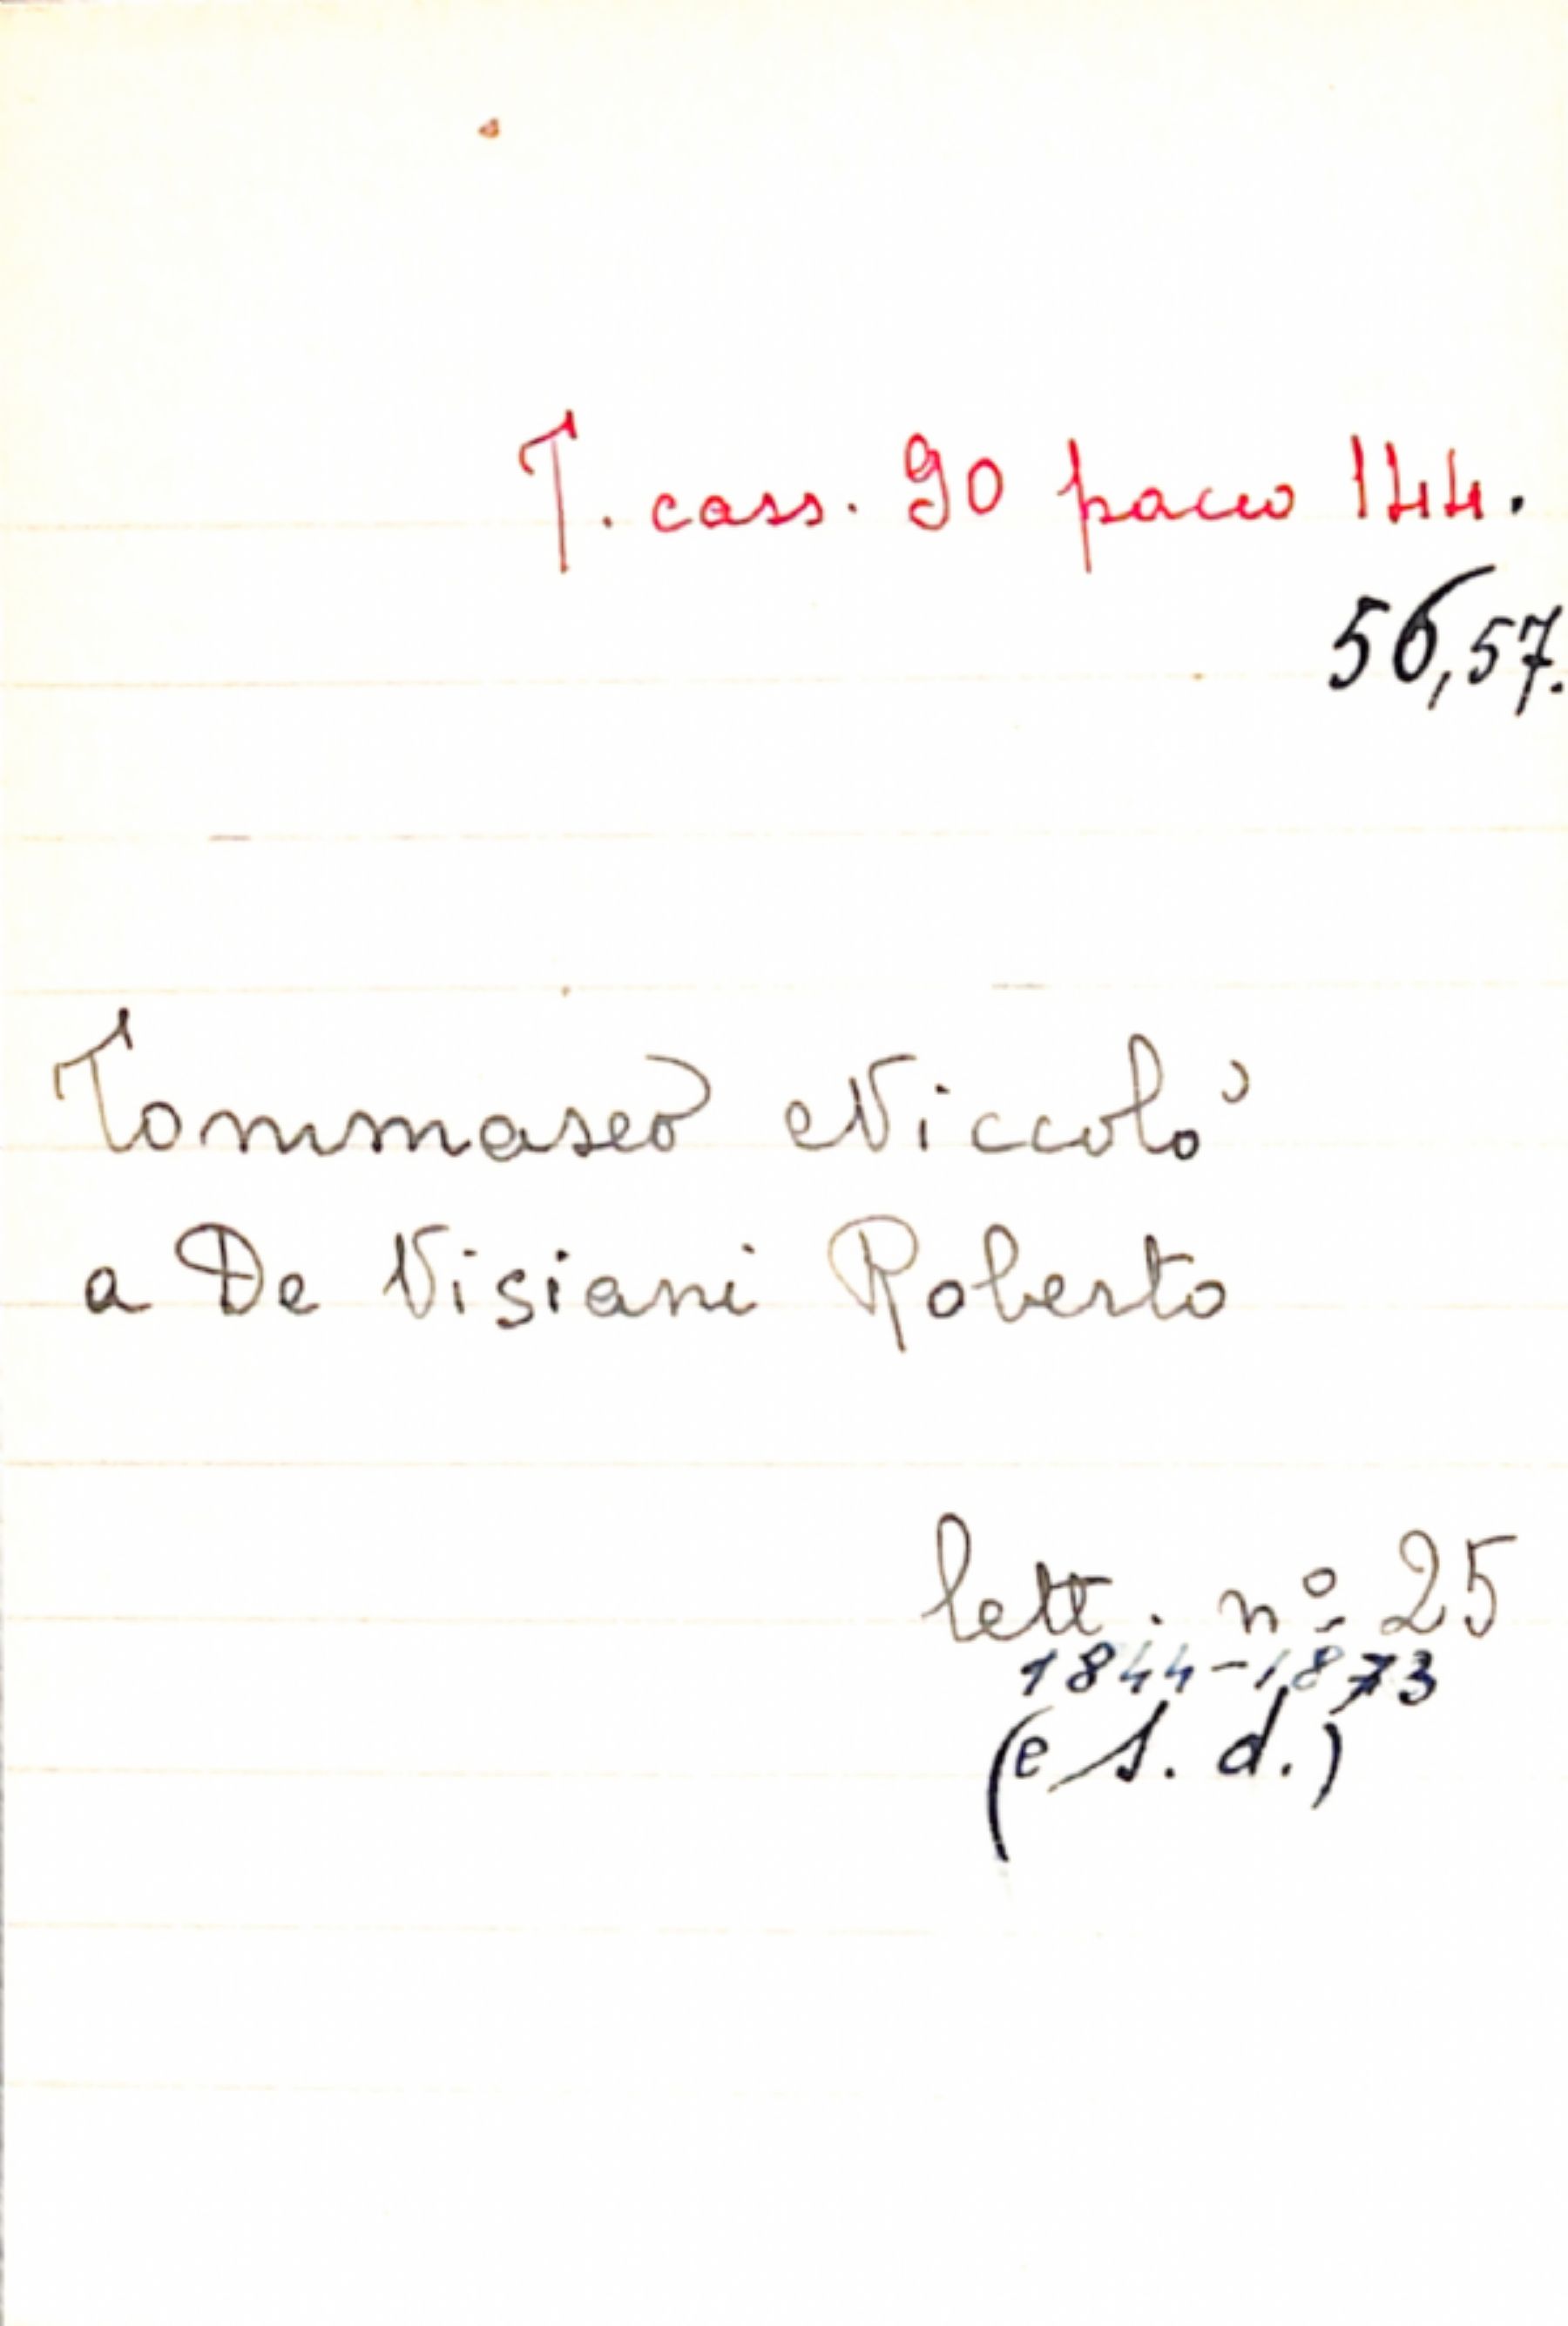 T. cass. 90 pacco 144.
56,57.
Tommaseo Niccolò
a De Visiani Roberto
lett. nº 25
1844-1873
(e s. d.)